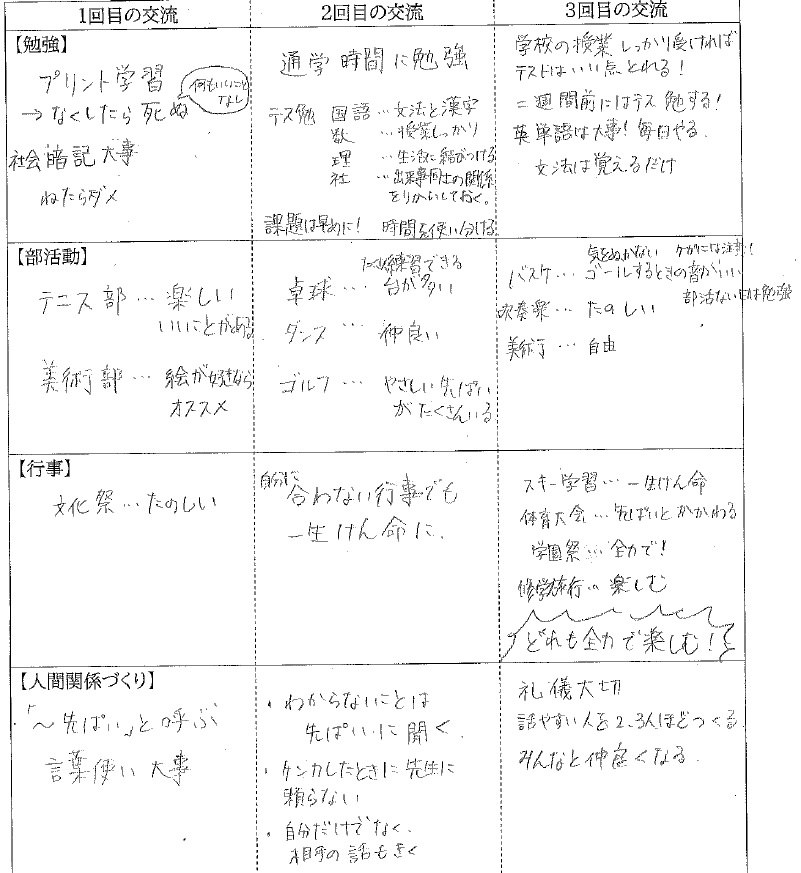 1回目の交流
2回目の交流
3回目の交流
【勉強】
プリント学習
→なくしたら死ぬ
何もいいこと
なし
社会暗記大事
ねたらダメ
通学時間に勉強
テス勉 国語…文法と漢字
数 …授業しっかり
理 …生活に結びつける
社 …出来事同士の関係
をりかいしておく。
課題は早めに! 時間を使い分ける
学校の授業しっかり受ければ
テストはいい点とれる!
二週間前にはテス勉する!
英単語は大事! 毎日やる.
文法は覚えるだけ
【部活動】
テニス部…楽しい
いいことがある
美術部…絵が好きなら
オススメ
たくさん練習できる
卓球…台が多い
ダンス…仲良い
ゴルフ…やさしい先ぱい
がたくさんいる
気をぬかない ケガには注意!
バスケ…ゴールするときの音がいい
部活ない日は勉強
吹奏楽…たのしい
美術…自由
【行事】
文化祭…たのしい
自分に
合わない行事でも
一生けん命に.
スキー学習…一生けん命
体育大会…先ぱいとかかわる
学園祭…全力で!
修学旅行…楽しむ
どれも全力で楽しむ!
【人間関係づくり】
「~先ぱい」と呼ぶ
言葉使い大事
・わからないことは
先ぱいに聞く.
・ケンカしたときに先生に
頼らない
・自分だけでなく、
相手の話もきく
礼儀大切
話やすい人を2.3人ほどつくる.
みんなと仲良くなる.